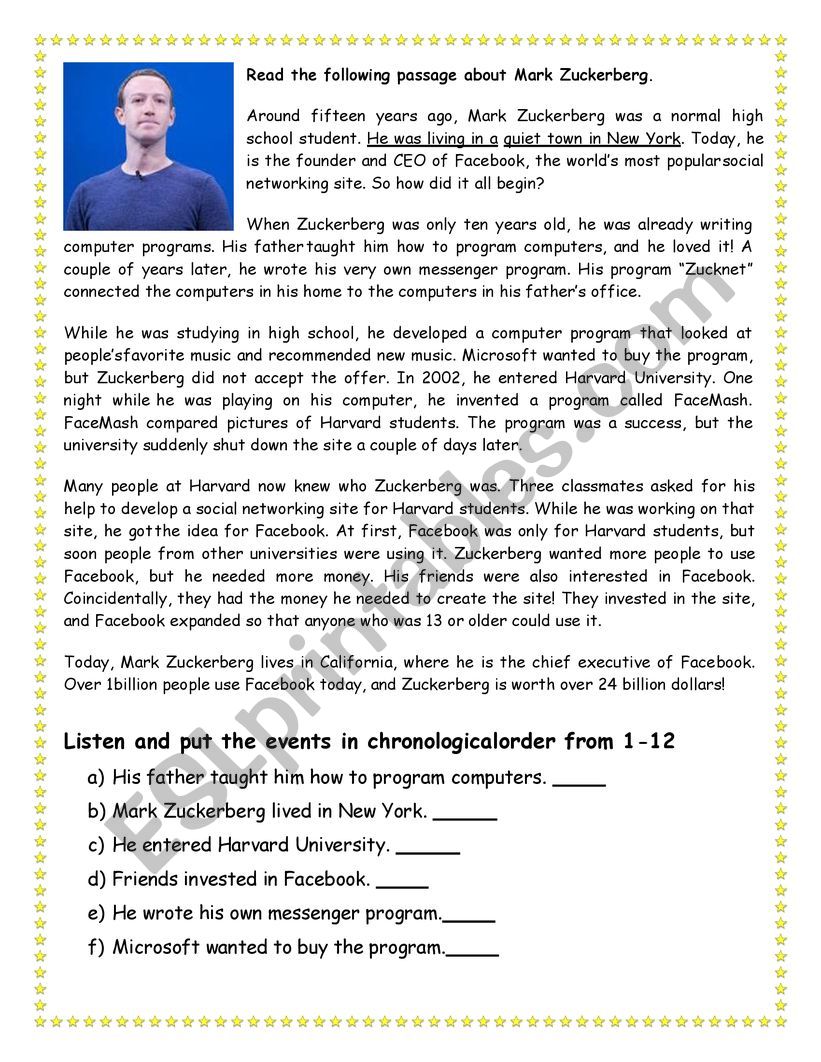 Read the following passage about Mark Zuckerberg.
Around fifteen years ago, Mark Zuckerberg was a normal high
school student. He was living in a quiet town in New York. Today, he
is the founder and CEO of Facebook, the world's most popularsocial
networking site. So how did it all begin?
When Zuckerberg was only ten years old, he was already writing
computer programs. His father taught him how to program computers, and he loved it! A
couple of years later, he wrote his very own messenger program. His program “Zucknet”
connected the computers in his home to the computers in his father's office.
While he was studying in high school, he developed a computer program that looked at
people'sfavorite music and recommended new music. Microsoft wanted to buy the program,
but Zuckerberg did not accept the offer. In 2002, he entered Harvard University. One
night while he was playing on his computer, he invented a program called FaceMash.
FaceMash compared pictures of Harvard students. The program was a success, but the
university suddenly shut down the site a couple of days later.
Many people at Harvard now knew who Zuckerberg was. Three classmates asked for his
help to develop a social networking site for Harvard students. While he was working on that
site, he got the idea for Facebook. At first, Facebook was only for Harvard students, but
soon people from other universities were using it. Zuckerberg wanted more people to use
Facebook, but he needed more money. His friends were also interested in Facebook.
Coincidentally, they had the money he needed to create the site! They invested in the site,
and Facebook expanded so that anyone who was 13 or older could use it.
Today, Mark Zuckerberg lives in California, where he is the chief executive of Facebook.
Over 1billion people use Facebook today, and Zuckerberg is worth over 24 billion dollars!
Listen and put the events in chronologicalorder from 1-12
a) His father taught him how to program computers. _____
b) Mark Zuckerberg lived in New York. ______
c) He entered Harvard University. ______
d) Friends invested in Facebook. _____
e) He wrote his own messenger program._____
f) Microsoft wanted to buy the program._____
ESLprintables.com